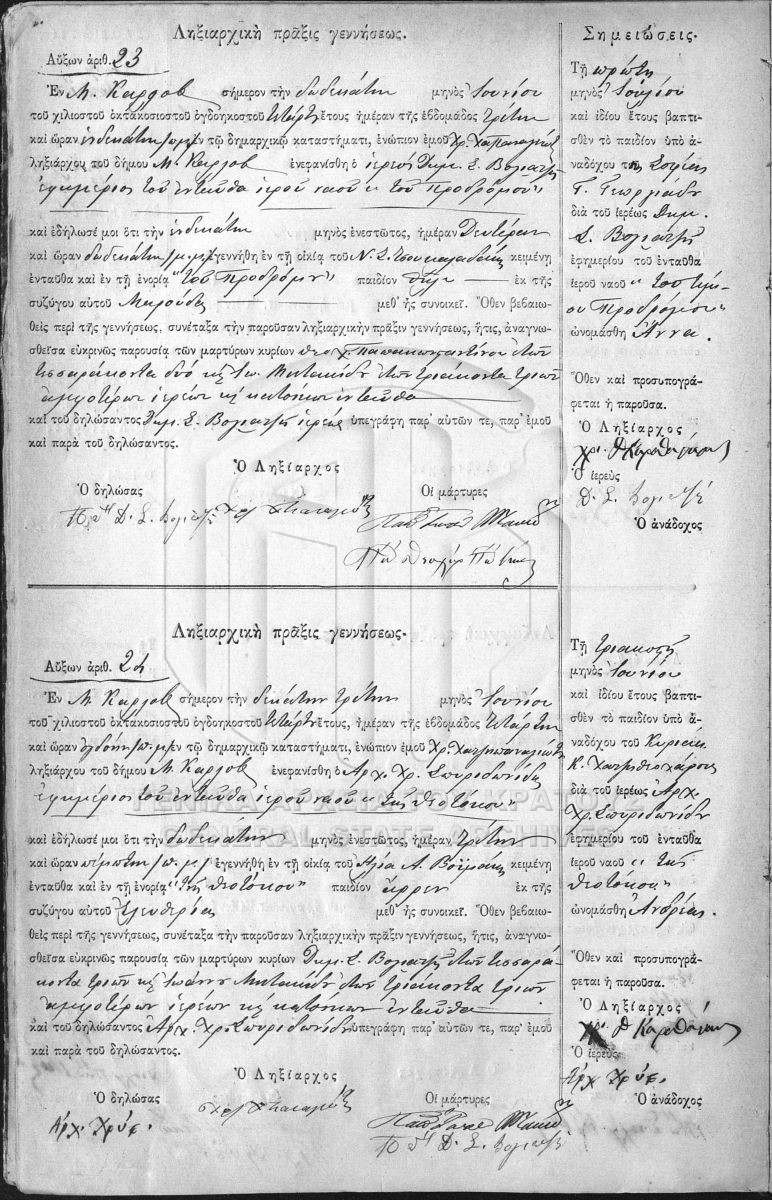 Ληξιαρχικὴ πρᾶξις γεννήσεως.
Αὔξων ἀριθ. 23
Ἐν Μ. Καρλοβ σήμερον τὴν δωδεκάτην μηνὸς Ἰουνίου
τοῦ χιλιοστοῦ ὀκτακοσιοστοῦ ὀγδοηκοστοῦ τετάρτου ἔτους ἡμέραν τῆς ἑβδομάδος Τρίτην
καὶ ὥραν ἑνδεκάτην π.μ. ἐν τῷ δημαρχικῷ καταστήματι, ἐνώπιον ἐμοῦ Χρ.
ληξιάρχου τοῦ δήμου Μ. Καρλοβ ἐνεφανίσθη ὁ ἱερεὺς Δημ. Σ.
ἐφημέριος τοῦ ἐνταῦθα ἱεροῦ ναοῦ « τοῦ Προδρόμου »
καὶ ἐδήλωσέ μοι ὅτι τὴν ἑνδεκάτην μηνὸς ἐνεστῶτος, ἡμέραν Δευτέραν
καὶ ὥραν δωδεκάτην μ.μ. ἐγεννήθη ἐν τῇ οἰκίᾳ τοῦ Ν. Σ. κειμένῃ
ἐνταῦθα καὶ ἐν τῇ ἐνορίᾳ "τοῦ Προδρόμου" παιδίον θῆλυ ἐκ τῆς
συζύγου αὐτοῦ Μαρούδας μεθ' ἧς συνοικεῖ. Ὅθεν βεβαιω-
θεὶς περὶ τῆς γεννήσεως, συνέταξα τὴν παροῦσαν ληξιαρχικὴν πρᾶξιν γεννήσεως, ἥτις, ἀναγνω-
σθεῖσα εὐκρινῶς παρουσίᾳ τῶν μαρτύρων κυρίων Θεο. χ. Παπακωνσταντίνου ἐτῶν
τεσσαράκοντα δύο κ Ἰω. ἐτῶν τριάκοντα τριῶν
ἀμφοτέρων ἱερέων κ κατοίκων ἐνταῦθα
καὶ τοῦ δηλώσαντος Δημ. Σ. ἱερέως ὑπεγράφη παρ' αὐτῶν τε, παρ' ἐμοῦ
καὶ παρὰ τοῦ δηλώσαντος.
Ὁ Ληξίαρχος
Ὁ δηλώσας Οἱ μάρτυρες
Δ. Σ.
Σημειώσεις.
Τῇ πρώτῃ
μηνὸς Ἰουλίου
καὶ ἰδίου ἔτους βαπτι-
σθὲν τὸ παιδίον ὑπὸ ἀ-
ναδόχου τῆς Σοφίας
Γ. Γεωργιάδου
διὰ τοῦ ἱερέως Δημ.
Σ.
ἐφημερίου τοῦ ἐνταῦθα
ἱεροῦ ναοῦ « τοῦ Τιμί-
ου Προδρόμου »
ὠνομάσθη Ἄννα.
Ὅθεν καὶ προσυπογρά-
φεται ἡ παροῦσα.
Ὁ Ληξίαρχος
Ὁ ἱερεὺς
Δ. Σ.
Ὁ ἀνάδοχος
Ληξιαρχικὴ πρᾶξις γεννήσεως.
Αὔξων ἀριθ. 24
Ἐν Μ. Καρλοβ σήμερον τὴν δεκάτην τρίτην μηνὸς Ἰουνίου
τοῦ χιλιοστοῦ ὀκτακοσιοστοῦ ὀγδοηκοστοῦ τετάρτου ἔτους, ἡμέραν τῆς ἑβδομάδος Τετάρτην
καὶ ὥραν ὀγδόην π.μ. ἐν τῷ δημαρχικῷ καταστήματι, ἐνώπιον ἐμοῦ Χρ. Χατζηπαναγιώτου
ληξιάρχου τοῦ δήμου Μ. Καρλοβ ἐνεφανίσθη ὁ Ἀρχ. Χρ. Σπυριδωνίδης
ἐφημέριος τοῦ ἐνταῦθα ἱεροῦ ναοῦ « τῆς Θεοτόκου »
καὶ ἐδήλωσέ μοι ὅτι τὴν δωδεκάτην μηνὸς ἐνεστῶτος, ἡμέραν Τρίτην
καὶ ὥραν πέμπτην π.μ. ἐγεννήθη ἐν τῇ οἰκίᾳ τοῦ Ἠλία Α. κειμένῃ
ἐνταῦθα καὶ ἐν τῇ ἐνορίᾳ "τῆς Θεοτόκου" παιδίον ἄρρεν ἐκ τῆς
συζύγου αὐτοῦ Ἐλευθερίας μεθ' ἧς συνοικεῖ. Ὅθεν βεβαιω-
θεὶς περὶ τῆς γεννήσεως, συνέταξα τὴν παροῦσαν ληξιαρχικὴν πρᾶξιν γεννήσεως, ἥτις, ἀναγνω-
σθεῖσα εὐκρινῶς παρουσίᾳ τῶν μαρτύρων κυρίων Δημ. Σ. ἐτῶν τεσσαρά-
κοντα τριῶν κ Ἰωάννου ἐτῶν τριάκοντα τριῶν
ἀμφοτέρων ἱερέων κ κατοίκων ἐνταῦθα
καὶ τοῦ δηλώσαντος Ἀρχ. Χρ. Σπυριδωνίδου ὑπεγράφη παρ' αὐτῶν τε, παρ' ἐμοῦ
καὶ παρὰ τοῦ δηλώσαντος.
Ὁ Ληξίαρχος
Ὁ δηλώσας Οἱ μάρτυρες
Ἀρχ. Χρύσ.
Δ. Σ.
Τῇ τριακοστῇ
μηνὸς Ἰουνίου
καὶ ἰδίου ἔτους βαπτι-
σθὲν τὸ παιδίον ὑπὸ ἀ-
ναδόχου τοῦ Κυριάκ.
Κ.
διὰ τοῦ ἱερέως Ἀρχ.
Χρ. Σπυριδωνίδου
ἐφημερίου τοῦ ἐνταῦθα
ἱεροῦ ναοῦ « τῆς
Θεοτόκου »
ὠνομάσθη Ἀνδρέας.
Ὅθεν καὶ προσυπογρά-
φεται ἡ παροῦσα.
Ὁ Ληξίαρχος
Ὁ ἱερεὺς
Ἀρχ. Χρύσ.
Ὁ ἀνάδοχος